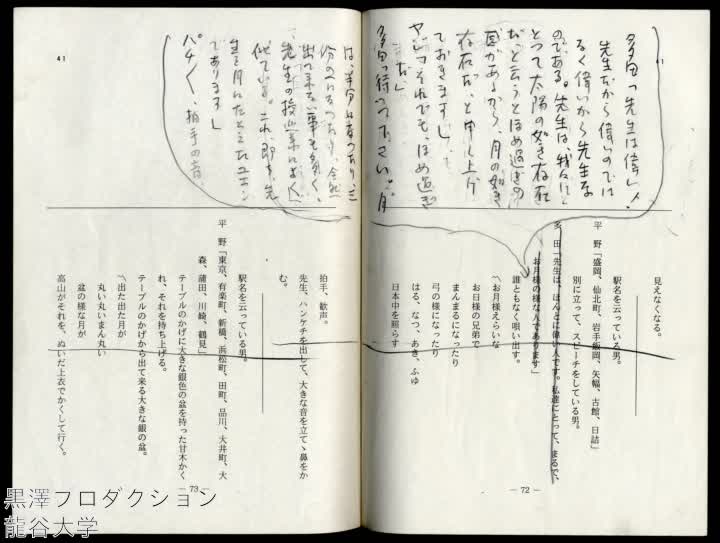 多田「先生は偉い人、
先生だから偉いのでは
なく偉いから先生な
のである。先生は、我々に
とって太陽の如き存在
だ、と云うとほめ過ぎの
存在だ、と申し上げ
ておきます」
ヤジ「それでも、ほめ過ぎ
だ」
多田「待って下さい。月
は、半分になったり、三
出て来ない事も多く、
先生の授業によく
似ている。これ、即ち、先
生を月にたとえたユエン
であります」
パチパチ、拍手の音。
見えなくなる。
駅名を云っている男。
平野「盛岡、仙北町、岩手飯岡、矢幅、古館、日詰」
別に立って、スピーチをしている男。
多田「先生は、ほんとに偉い人です。私達にとって、まるで、
お月様の様な人であります」
誰ともなく唄い出す。
〽お月様えらいな
お日様の兄弟で
まんまるになったり
弓の様になったり
はる、なつ、あき、ふゆ
日本中を照らす
― 72 ―
拍手、歓声。
先生、ハンケチを出して、大きな音を立てゝ鼻をか
む。
駅名を云っている男。
平野「東京、有楽町、新橋、浜松町、田町、品川、大井町、大
森、蒲田、川崎、鶴見」
テーブルのかげに大きな銀色の盆を持った甘木かく
れ、それを持ち上げる。
テーブルのかげから出て来る大きな銀の盆。
〽出た出た月が
丸い丸いまん丸い
盆の様な月が
高山がそれを、ぬいだ上衣でかくして行く。
― 73 ―
41
黒澤プロダクション
龍谷大学